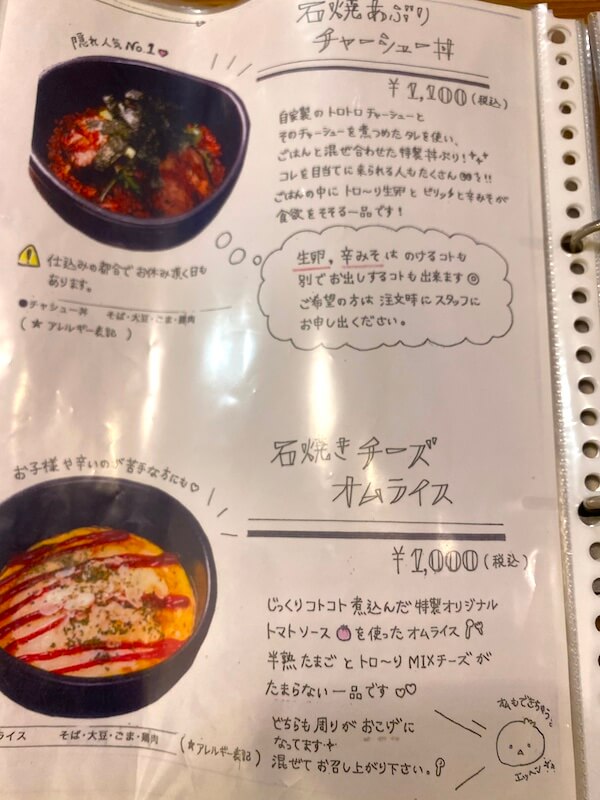 石焼あぶり
チャーシュー丼
隠れ人気No.1♥
¥1,100(税込)
自家製のトロトロチャーシューと
そのチャーシューを煮つめたタレを使い、
ごはんと混ぜ合わせた特製丼ぶり!
コレを目当てに来られる人もたくさん!!
ごはんの中にトロ〜り生卵とピリッと辛みそが
食欲をそそる一品です!
⚠仕込みの都合でお休み頂く日も
あります。
●チャシュー丼 そば・大豆・ごま・鶏肉
(★アレルギー表記)
生卵、辛みそはのけるコトも
別でお出しするコトも出来ます◎
ご希望の方は注文時にスタッフに
お申し出ください。
石焼きチーズ
オムライス
お子様や辛いのが苦手な方にも♡
¥1,000(税込)
じっくりコトコト煮込んだ特製オリジナル
トマトソースを使ったオムライス
半熟たまごとトロ〜りMIXチーズが
たまらない一品です♡♡
どちらも周りがおこげに
なってます
混ぜてお召し上がり下さい。
ライス そば・大豆・ごま・鶏肉
(★アレルギー表記)
エッヘン